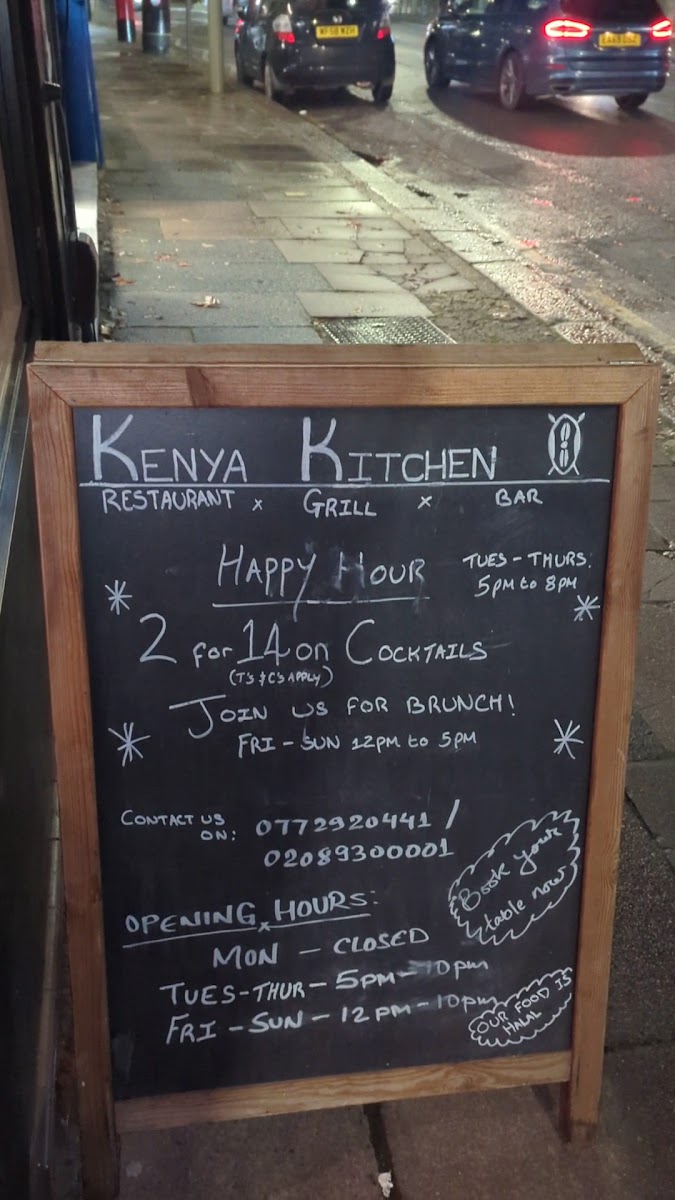 WF58 MZH
KENYA KITCHEN
RESTAURANT x GRILL x BAR
HAPPY HOUR
TUES - THURS:
5PM to 8PM
2 for 14 on COCKTAILS
(T'S & C'S APPLY)
JOIN US FOR BRUNCH!
FRI - SUN 12PM to 5PM
CONTACT US
ON: 0772920441 /
02089300001
Book your
table now
OPENING HOURS:
MON - CLOSED
TUES-THUR - 5PM - 10pm
FRI - SUN - 12 PM - 10pm
OUR FOOD IS
HALAL